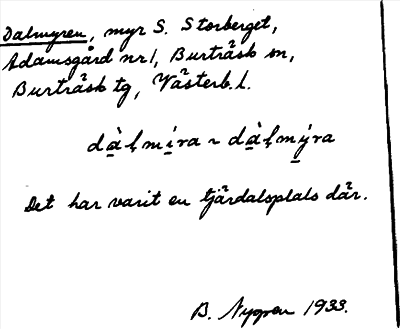 Dalmyren, myr S. Storberget,
Adamsgård nr 1, Burträsk sn,
Burträsk tg, Västerb. l.
dà̱ḷmí̱ra ~ dà̱ḷmý̱ra
Det har varit en tjärdalsplats där.
B. Nygren 1933.